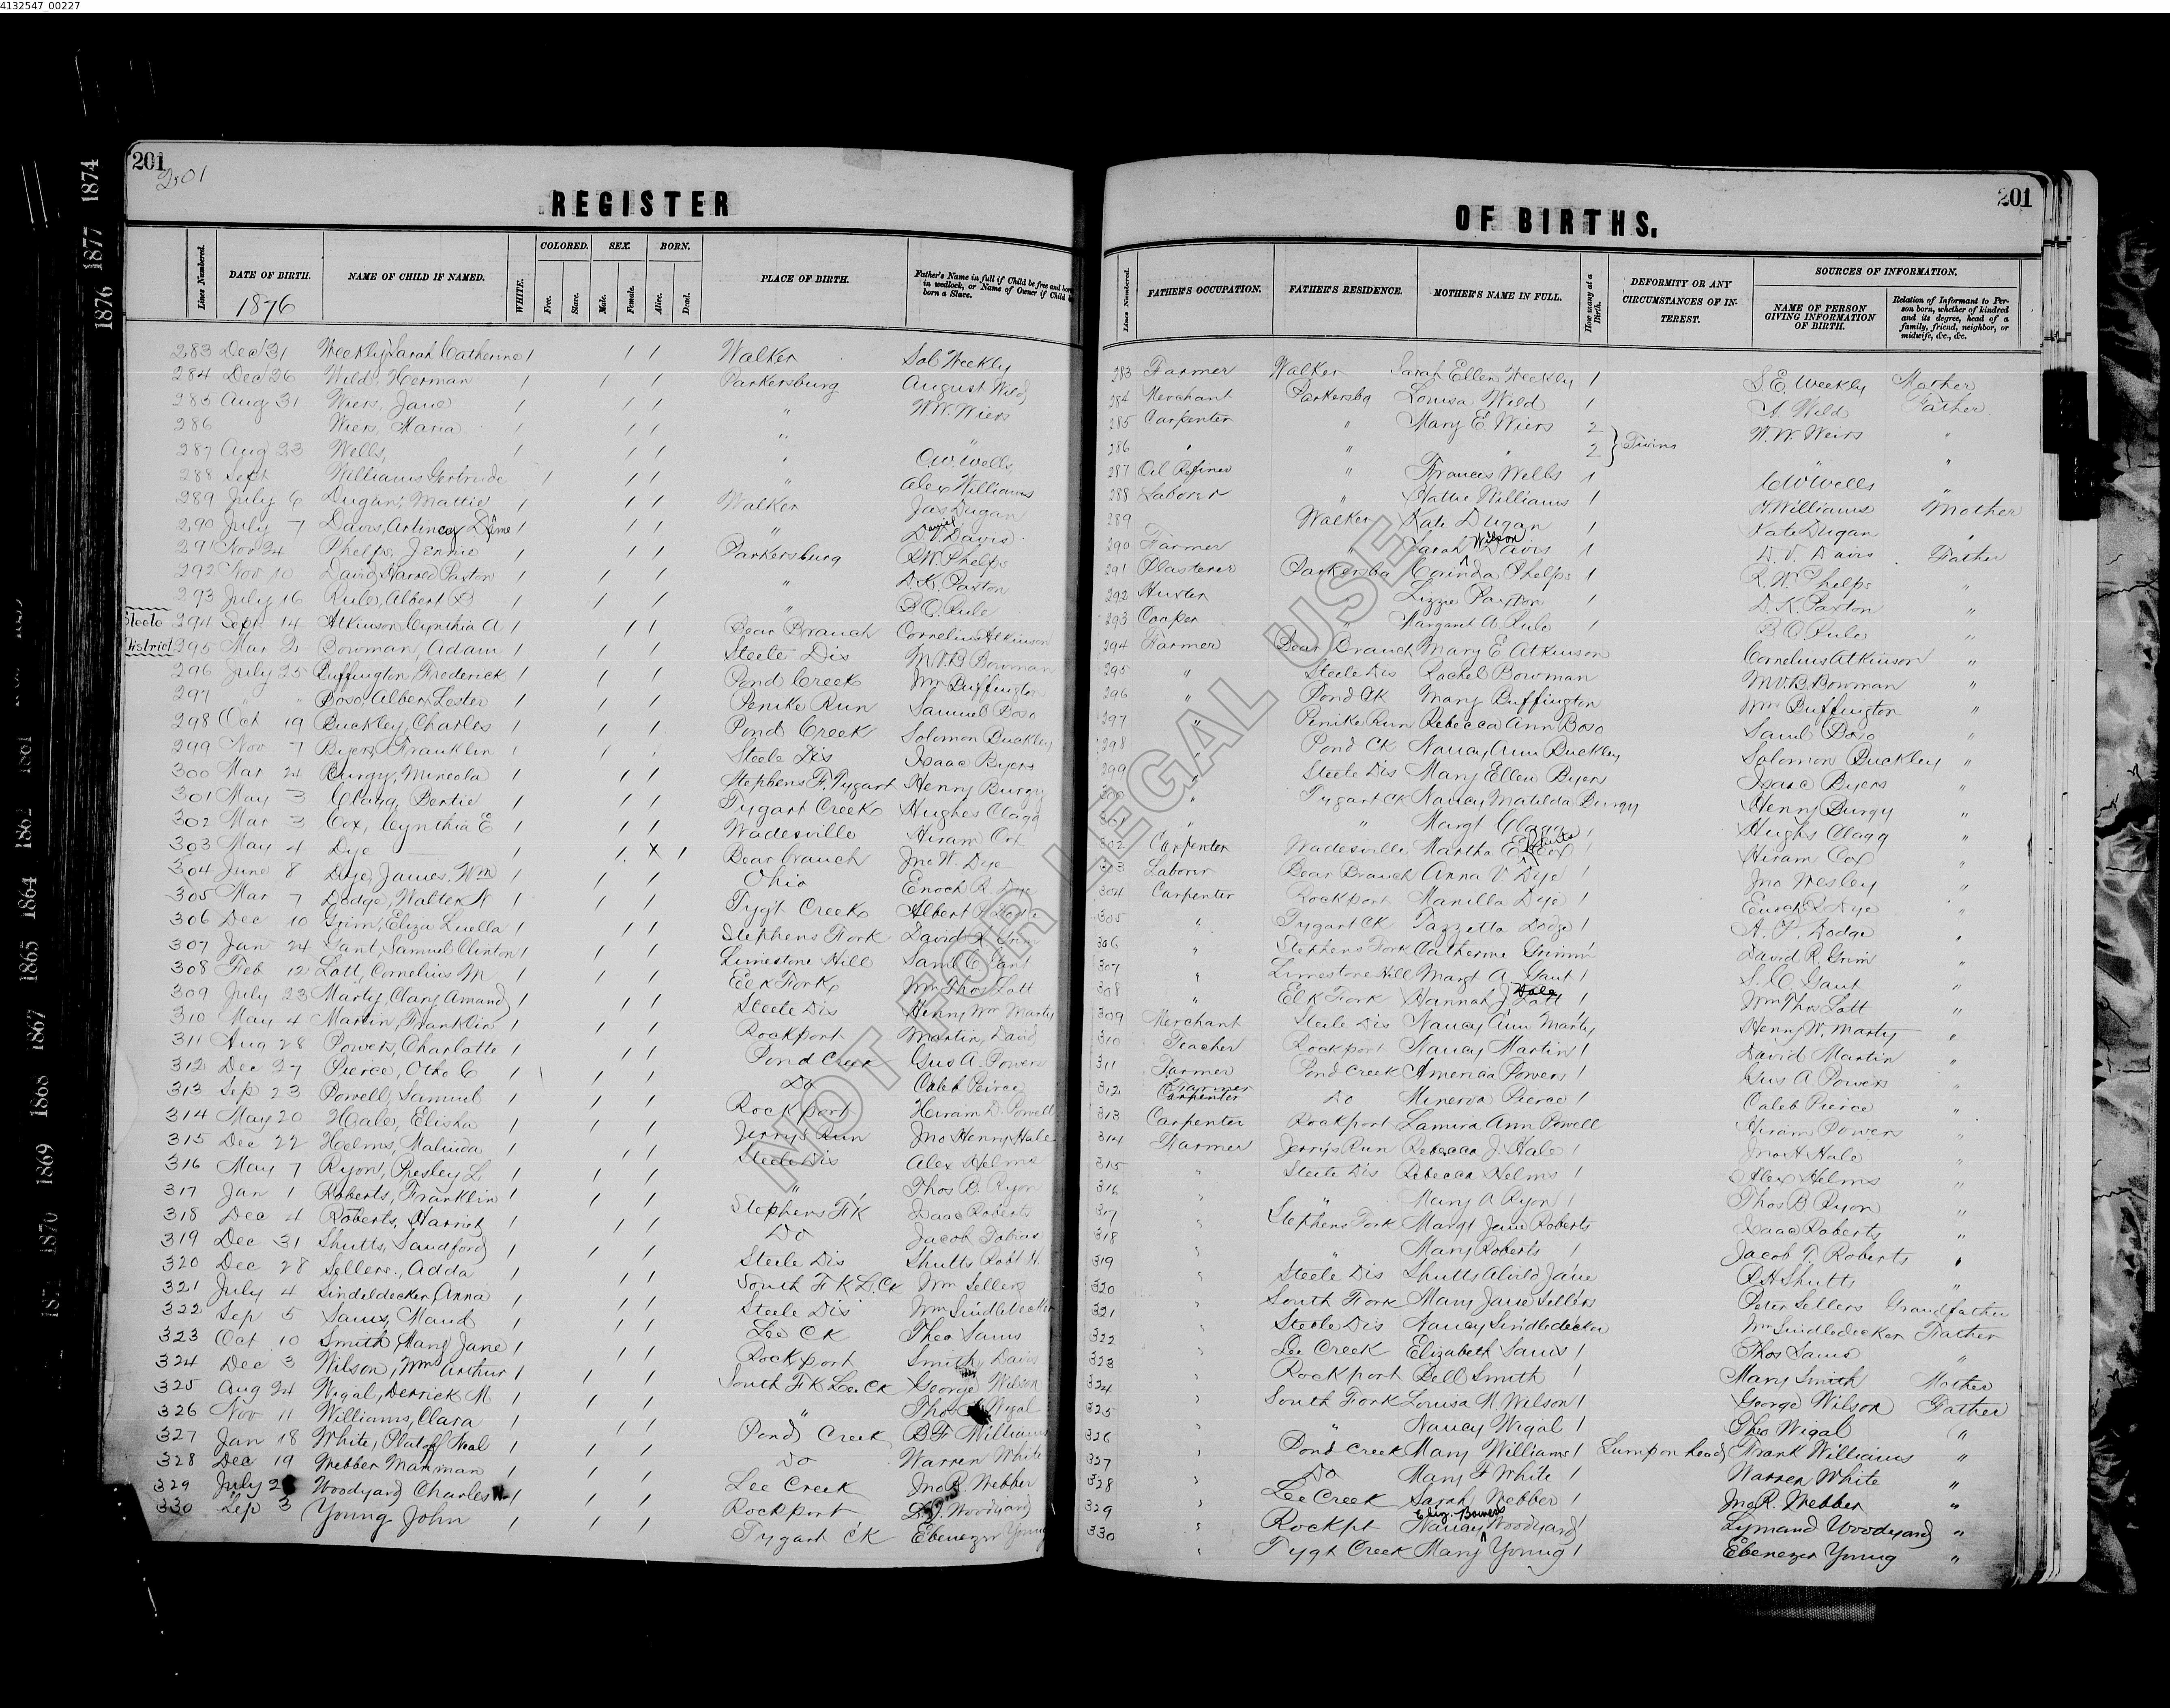 4132547_00227
1876 1877 1874
201
201
REGISTER
Lines Numbered.
DATE OF BIRTH.
1876
NAME OF CHILD IF NAMED.
WHITE.
COLORED.
Free.
Slave.
SEX.
Male.
Female.
BORN.
Alive.
Dead.
PLACE OF BIRTH.
Father's Name in full if Child be free and born in wedlock, or Name of Owner if Child be born a Slave.
283 Dec 31 Weekly Sarah Catherine 1 / / Walker Sol Weekly
284 Dec 26 Wild, Herman 1 / / Parkersburg August Wild
285 Aug 31 Wiers, Jane 1 / / " W.W. Wiers
286 Wiers, Maria 1 / / " "
287 Aug 23 Wells, 1 / / " C.W. Wells
288 Sept Williams Gertrude 1 / / " Alex Williams
289 July 6 Dugan, Mattie 1 / / Walker Jas Dugan
290 July 7 Davis, 1 / / " D.V. Davis Daniel
291 Nov 24 Phelps, Jennie 1 / / Parkersburg R.W. Phelps
292 Nov 10 David Harred Paxton 1 / / " D.K. Paxton
293 July 16 Rule, Albert B 1 / / " B.C. Rule
Steele 294 Sept 14 Atkinson Cynthia A 1 / / Bear Branch Cornelius Atkinson
District 295 Mar 2 Bowman, Adam 1 / / Steele Dis M.V.B Bowman
296 July 25 Buffington, Frederick 1 / / Pond Creek Wm Buffington
297 " " Boso, Albert Lester 1 / / Penike Run Samuel Boso
298 Oct 19 Buckley, Charles 1 / / Pond Creek Solomon Buckley
299 Nov 7 Byers, Franklin 1 / / Steele Dis Isaac Byers
300 Mar 24 Burgy, Mineola 1 / / Stephens F. Tygart Henry Burgy
301 May 3 Clagg, Bertie 1 / / Tygart Creek Hughes Clagg
302 Mar 3 Cox, Cynthia E 1 / / Wadesville Hiram Cox
303 May 4 Dye 1 / X / Bear Branch Jno W. Dye
304 June 8 Dye, James. Wm 1 / / Ohio Enoch R. Dye
305 Mar 7 Dodge, Walter N 1 / / Tygt Creek Albert
306 Dec 10 Grim, Eliza Luella 1 / / Stephens Fork David R
307 Jan 24 Gant, Samuel Clinton 1 / / Limestone Hill Saml C. Gant
308 Feb 12 Lott, Cornelius M 1 / / Elk Fork Wm Thos Lott
309 July 23 Marty, Clary Amand 1 / / Steele Dis Henry Wm Marty
310 May 4 Martin, Franklin 1 / / Rockport Martin, David
311 Aug 28 Powers, Charlotte 1 / / Pond Creek Gus A. Powers
312 Dec 27 Pierce, Otho C 1 / / Do Caleb Peirce
313 Sep 23 Powell, Samuel 1 / / Rockport Hiram D. Powell
314 May 20 Hale, Elisha 1 / / Jerrys Run Jno Henry Hale
315 Dec 22 Helms, Malinda 1 / / Steele Dis Alex Helms
316 May 7 Ryon, Presley L 1 / / " Thos B. Ryon
317 Jan 1 Roberts, Franklin 1 / / Stephens Fk Isaac Roberts
318 Dec 4 Roberts, Harriet 1 / / Do Jacob Tobias
319 Dec 31 Shutts, Sandford 1 / / Steele Dis Shutts Robt H.
320 Dec 28 Sellers, Adda 1 / / South FK L. Ck Wm Sellers
321 July 4 Sindeldecker, Anna 1 / / Steele Dis Wm Sindledecker
322 Sep 5 Sams, Maud 1 / / Lee Ck Theo Sams
323 Oct 10 Smith Mary Jane 1 / / Rockport Smith, Davis
324 Dec 3 Wilson, Wm Arthur 1 / / South FK Lee Ck George Wilson
325 Aug 24 Wigal, Derrick M 1 / / " Thos Wigal
326 Nov 11 Williams, Clara 1 / / Pond Creek B.F. Williams
327 Jan 18 White, Platoff Neal 1 / / Do Warren White
328 Dec 19 Webber Marrman 1 / / Lee Creek Jno R. Webber
329 July 2 Woodyard Charles W. 1 / / Rockport Woodyard
330 Sep 3 Young John 1 / / Tygart Ck Ebenezer Young
201
OF BIRTHS.
Lines Numbered.
FATHER'S OCCUPATION.
FATHER'S RESIDENCE.
MOTHER'S NAME IN FULL.
How many at a Birth.
DEFORMITY OR ANY CIRCUMSTANCES OF INTEREST.
SOURCES OF INFORMATION.
NAME OF PERSON GIVING INFORMATION OF BIRTH.
Relation of Informant to Person born, whether of kindred and its degree, head of a family, friend, neighbor, or midwife, &c., &c.
283 Farmer Walker Sarah Ellen Weekly 1 S.E. Weekly Mother
284 Merchant Parkersbg Louisa Wild 1 A Wild Father
285 Carpenter " Mary E. Wiers 2 } Twins W.W. Weirs "
286 " " " 2 " "
287 Oil Refiner " Frances Wells 1 C W Wells "
288 Laborer " Hattie Williams 1 Williams Mother
289 Walker Kate Dugan 1 Kate Dugan "
290 Farmer " Sarah Wilson Davis 1 D.V. Davis Father
291 Plasterer Parkersbg Corinda Phelps 1 R.W. Phelps "
292 Huxter " Lizzie Paxton 1 D.K. Paxton "
293 Cooper " Margaret A. Rule 1 B.C. Rule "
294 Farmer Bear Branch Mary E Atkinson Cornelius Atkinson "
295 " Steele Dis Rachel Bowman M.V.B. Bowman "
296 " Pond Ck Mary Buffington Wm Buffington "
297 " Penike Run Rebecca Ann Boso Saml Boso "
298 " Pond Ck Nancy Ann Buckley Solomon Buckley "
299 " Steele Dis Mary Ellen Byers Isaac Byers "
300 " Tygart Ck Nancy Matilda Burgy Henry Burgy "
301 " " Margt Clagg 1 Hughs Clagg "
302 Carpenter Wadesville Martha E. Cox 1 Hiram Cox "
303 Laborer Bear Branch Anna V. Dye 1 Jno Wesley "
304 Carpenter Rockport Manilla Dye 1 Enoch Dye "
305 " Tygart CK Tazzetta Dodge 1 A. P. Dodge "
306 " Stephens Fork Catherine Grimm David R. Grim "
307 " Limestone Hill Margt A. Gant 1 S. C. Gant "
308 " Elk Fork Hannah J. Lott Hale 1 Wm Thos Lott "
309 Merchant Steele Dis Nancy Ann Marty Henry W. Marty "
310 Teacher Rockport Nancy Martin 1 David Martin "
311 Farmer Pond Creek America Powers 1 Gus A Powers "
312 Farmer Carpenter Do Minerva Pierce 1 Caleb Pierce "
313 Carpenter Rockport Lamira Ann Powell Hiram Powers "
314 Farmer Jerry's Run Rebecca J. Hale 1 Jno H Hale "
315 " Steele Dis Rebecca Helms 1 Alex Helms "
316 " " Mary A Ryon 1 Thos B Ryon "
317 " Stephens Fork Margt Jane Roberts Isaac Roberts "
318 " " Mary Roberts 1 Jacob T. Roberts "
319 " Steele Dis Shutts Jane R.H Shutts "
320 " South Fork Mary Jane Sellers Peter Sellers Grandfather
321 " Steele Dis Nancy Sindledecker Wm Sindledecker Father
322 " Lee Creek Elizabeth Sams 1 Thos Sams "
323 " Rockport Bell Smith 1 Mary Smith Mother
324 " South Fork Louisa M. Wilson 1 George Wilson Father
325 " " Nancy Wigal 1 Theo Wigal "
326 " Pond Creek Mary Williams 1 Lump on head Frank Williams "
327 " Do Mary F White 1 Warren White "
328 " Lee Creek Sarah Webber 1 Jno R. Webber "
329 " Rockpt Nancy Eliz. Bowers Woodyard 1 Lymand Woodyard "
330 " Tygt Creek Mary Young 1 Ebenezer Young "
NOT FOR LEGAL USE
1862 1864 1865 1867 1868 1869 1870